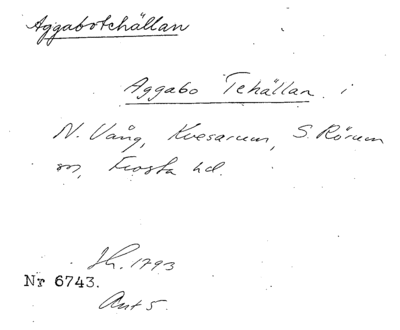 Aggabotehällan
Aggabo Tehällan i
N. Vång, Kvesarum, S. Rörum
sn, Frosta hd.
Sk. 1793
Nr 6743.
Ant 5.